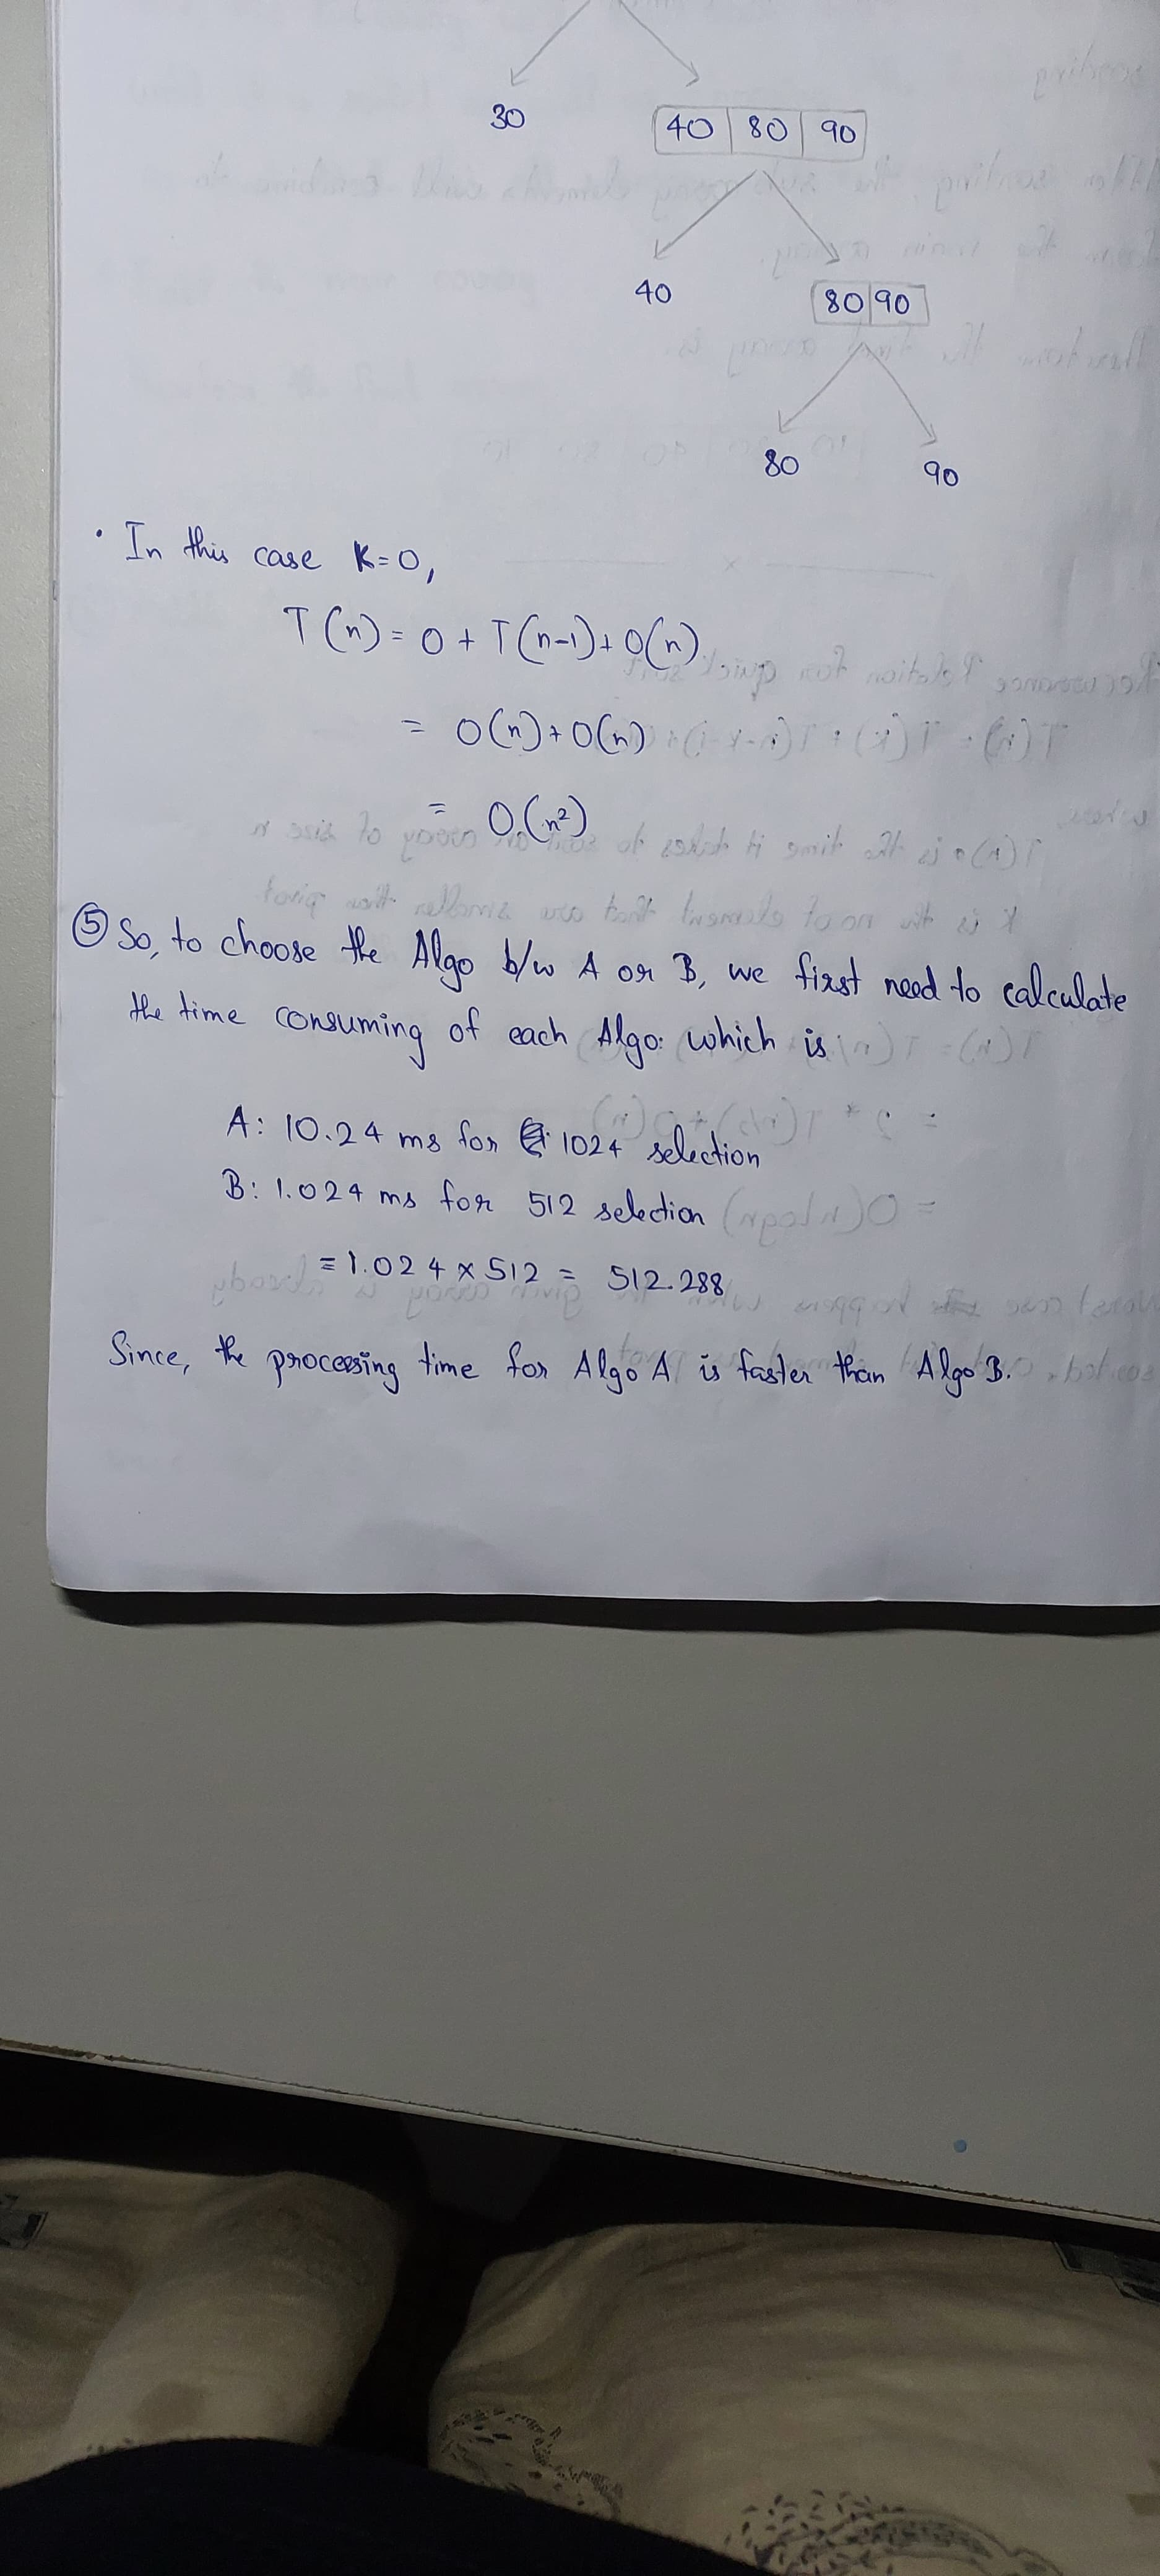 30
40 80 90
40
80 90
80
90
· In this case K=0,
T(n) = 0 + T(n-1) + O(n)
= O(n) + O(n)
= O(n²)
⑤ So, to choose the Algo b/w A or B, we first need to calculate
the time consuming of each Algo: which is
A: 10.24 ms for 1024 selection
B: 1.024 ms for 512 selection
= 1.024 × 512 = 512.288
Since, the proceesing time for Algo A is faster than Algo B.